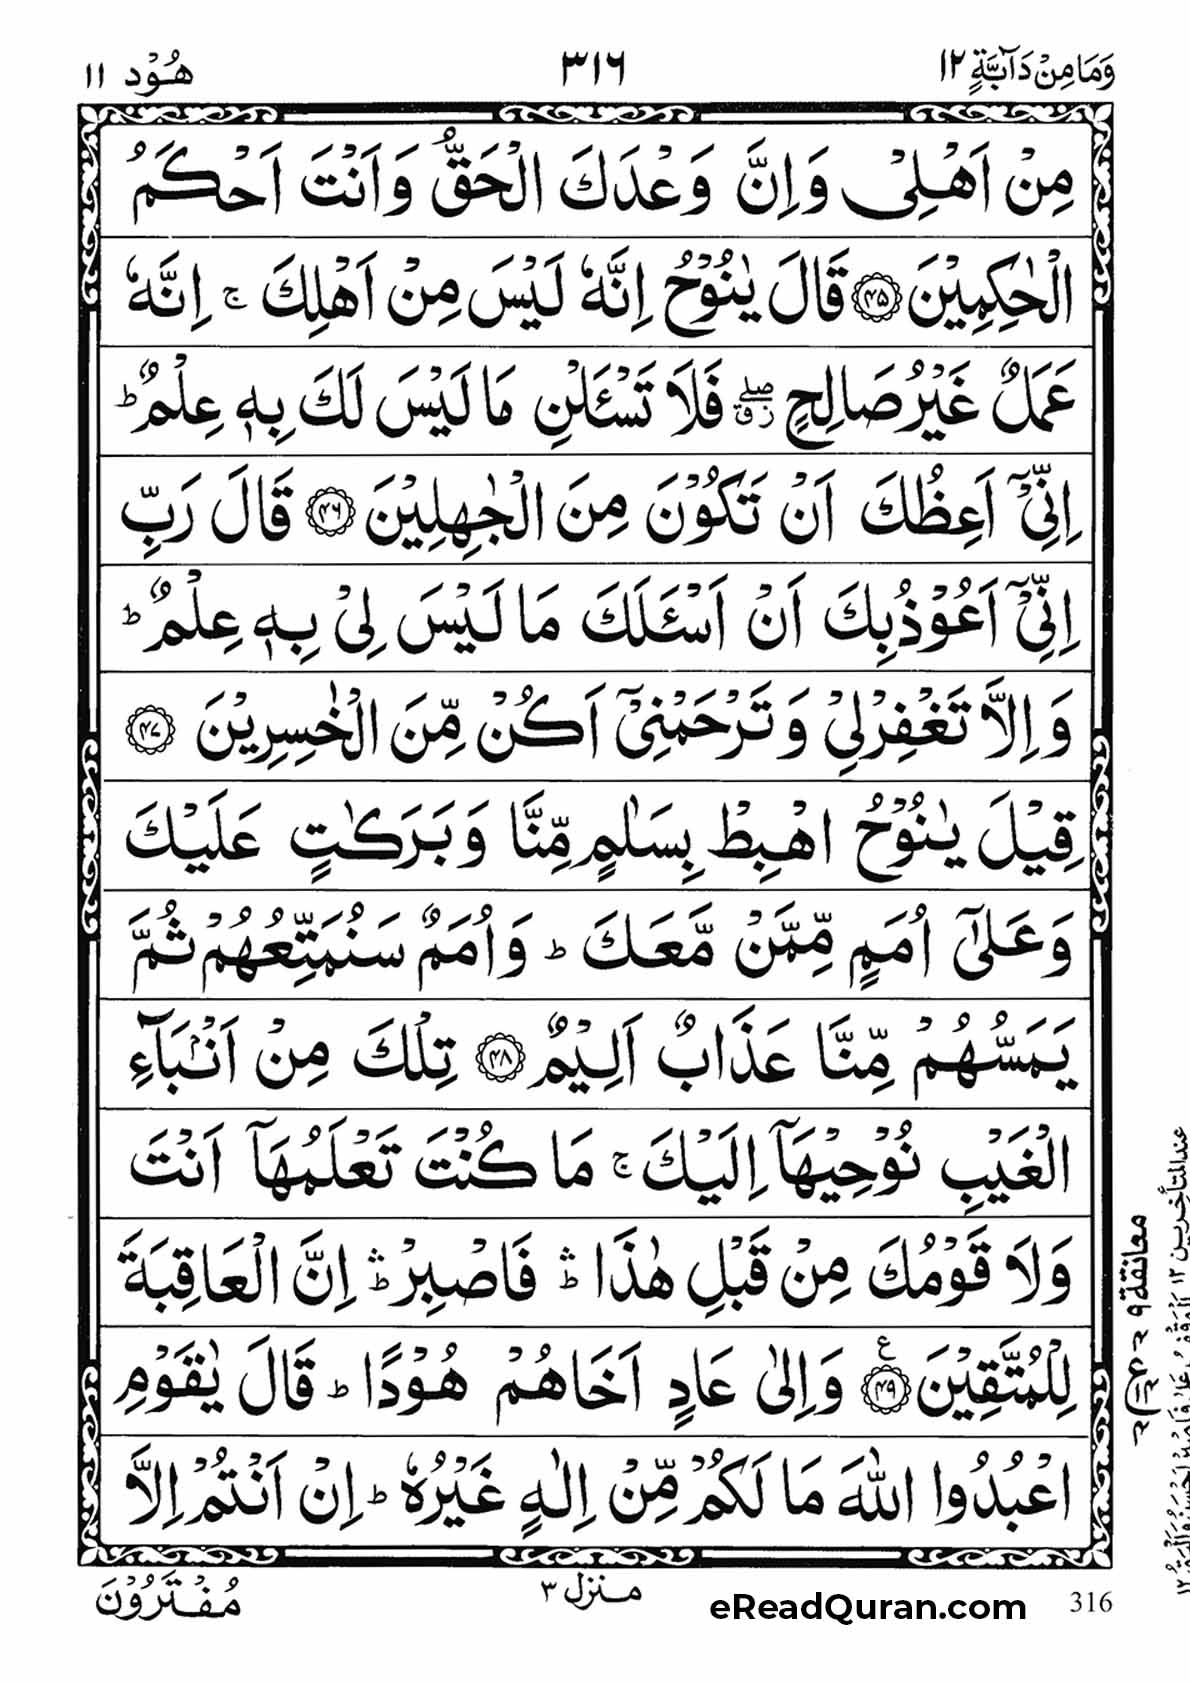 وَمَا مِنْ دَآبَّةٍ ١٢
٣١٦
هُوْد ١١
مِنْ اَهْلِیْ وَاِنَّ وَعْدَكَ الْحَقُّ وَاَنْتَ اَحْكَمُ
الْحٰكِمِیْنَ ﴿٤٥﴾ قَالَ یٰنُوْحُ اِنَّهٗ لَیْسَ مِنْ اَهْلِكَ ۚ اِنَّهٗ
عَمَلٌ غَیْرُ صَالِحٍ ۖ ز ق فَلَا تَسْـَٔلْنِ مَا لَیْسَ لَكَ بِهٖ عِلْمٌ ؕ
اِنِّیْۤ اَعِظُكَ اَنْ تَكُوْنَ مِنَ الْجٰهِلِیْنَ ﴿٤٦﴾ قَالَ رَبِّ
اِنِّیْۤ اَعُوْذُ بِكَ اَنْ اَسْـَٔلَكَ مَا لَیْسَ لِیْ بِهٖ عِلْمٌ ؕ
وَاِلَّا تَغْفِرْلِیْ وَتَرْحَمْنِیْۤ اَكُنْ مِّنَ الْخٰسِرِیْنَ ﴿٤٧﴾
قِیْلَ یٰنُوْحُ اهْبِطْ بِسَلٰمٍ مِّنَّا وَبَرَكٰتٍ عَلَیْكَ
وَعَلٰۤی اُمَمٍ مِّمَّنْ مَّعَكَ ؕ وَاُمَمٌ سَنُمَتِّعُهُمْ ثُمَّ
یَمَسُّهُمْ مِّنَّا عَذَابٌ اَلِیْمٌ ﴿٤٨﴾ تِلْكَ مِنْ اَنْۢبَآءِ
الْغَیْبِ نُوْحِیْهَاۤ اِلَیْكَ ۚ مَا كُنْتَ تَعْلَمُهَاۤ اَنْتَ
وَلَا قَوْمُكَ مِنْ قَبْلِ هٰذَا ۛؕ فَاصْبِرْ ۛؕ اِنَّ الْعَاقِبَةَ
لِلْمُتَّقِیْنَ ﴿٤٩﴾ ع وَاِلٰی عَادٍ اَخَاهُمْ هُوْدًا ؕ قَالَ یٰقَوْمِ
اعْبُدُوا اللّٰهَ مَا لَكُمْ مِّنْ اِلٰهٍ غَیْرُهٗ ؕ اِنْ اَنْتُمْ اِلَّا
معانقة ٩
عند المتأخرین ١٢
منزل ٣
مُفْتَرُوْنَ
eReadQuran.com
316